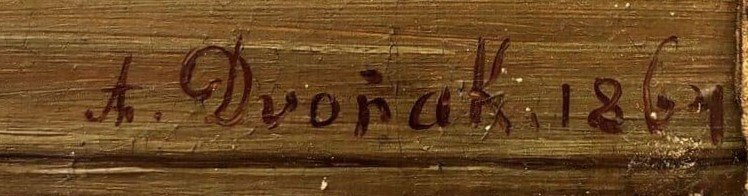 A. Dvořak. 1867